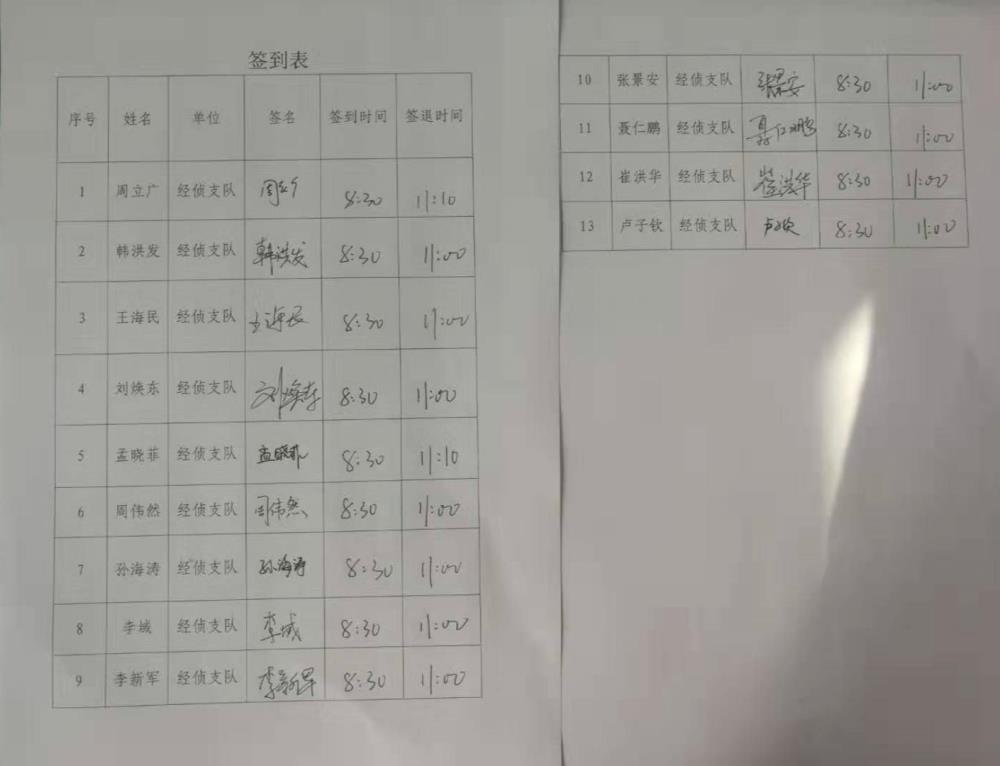 签到表
序号 姓名 单位 签名 签到时间 签退时间
1 周立广 经侦支队 周立广 8:30 11:10
2 韩洪发 经侦支队 韩洪发 8:30 11:00
3 王海民 经侦支队 王海民 8:30 11:00
4 刘焕东 经侦支队 刘焕东 8:30 11:00
5 孟晓菲 经侦支队 孟晓菲 8:30 11:10
6 周伟然 经侦支队 周伟然 8:30 11:00
7 孙海涛 经侦支队 孙海涛 8:30 11:00
8 李城 经侦支队 李城 8:30 11:00
9 李新军 经侦支队 李新军 8:30 11:00
10 张景安 经侦支队 张景安 8:30 11:00
11 聂仁鹏 经侦支队 聂仁鹏 8:30 11:00
12 崔洪华 经侦支队 崔洪华 8:30 11:00
13 卢子钦 经侦支队 卢子钦 8:30 11:00